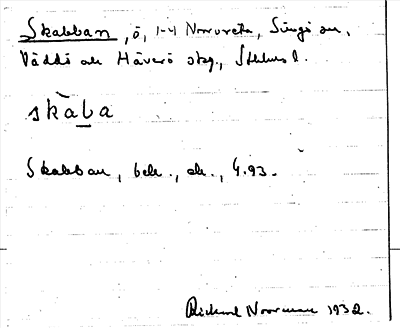 Skabban, ö, 1-4 Norrveta, Singö sn,
Väddö och Häverö skg., Sthlms l.
skàba
Skabban, beb., ek., 4.93.
Rickard Norrman 1932.